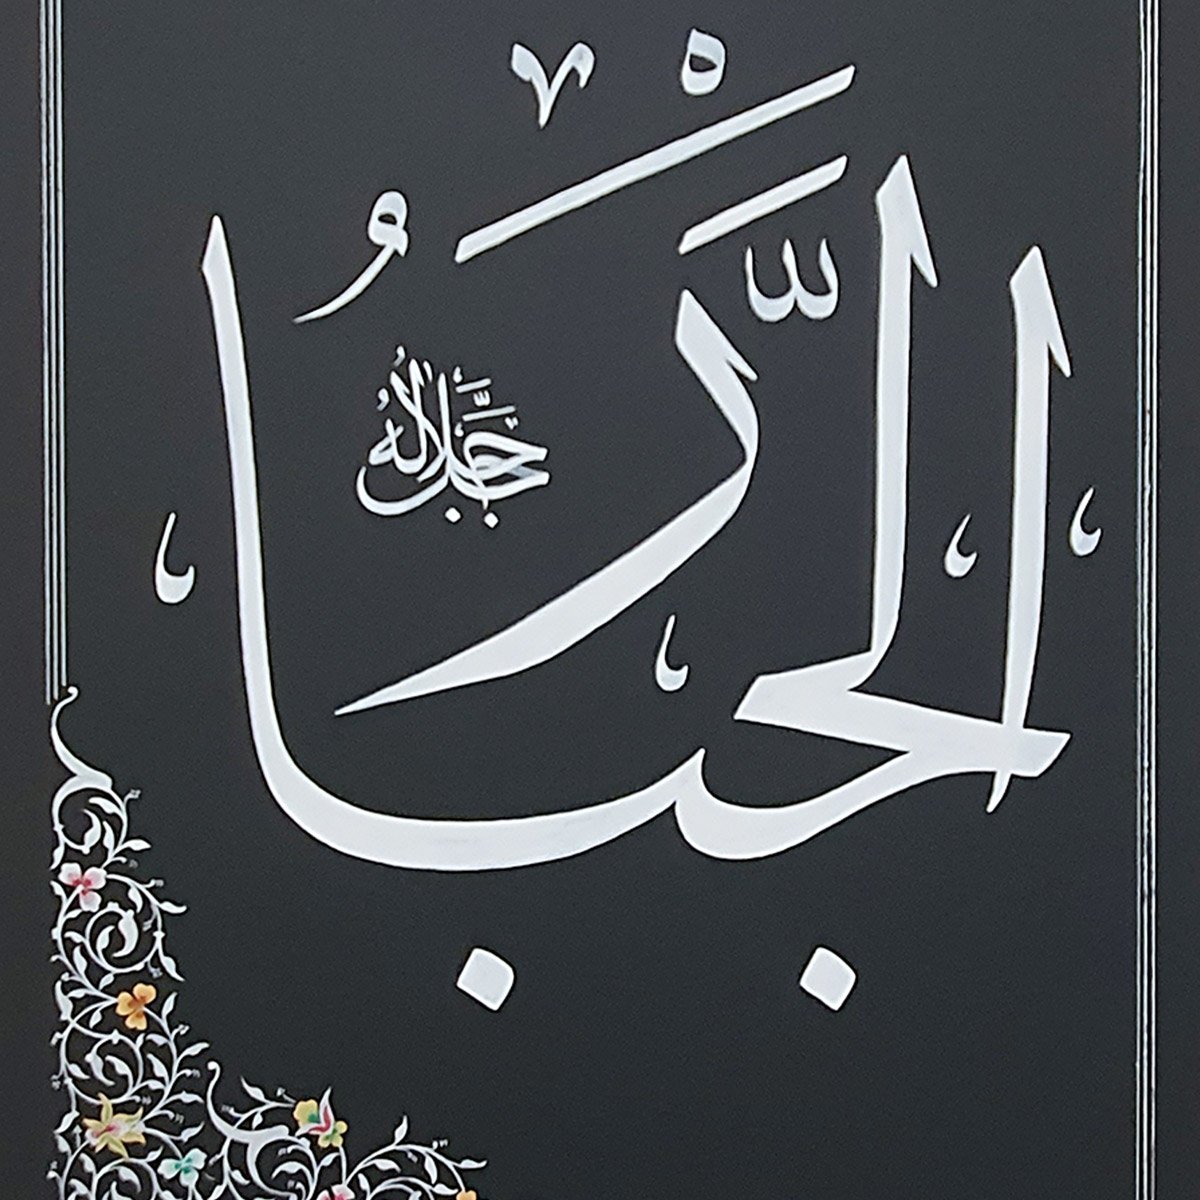 الجَبَّارُ
جَلَّ جَلَالُهُ